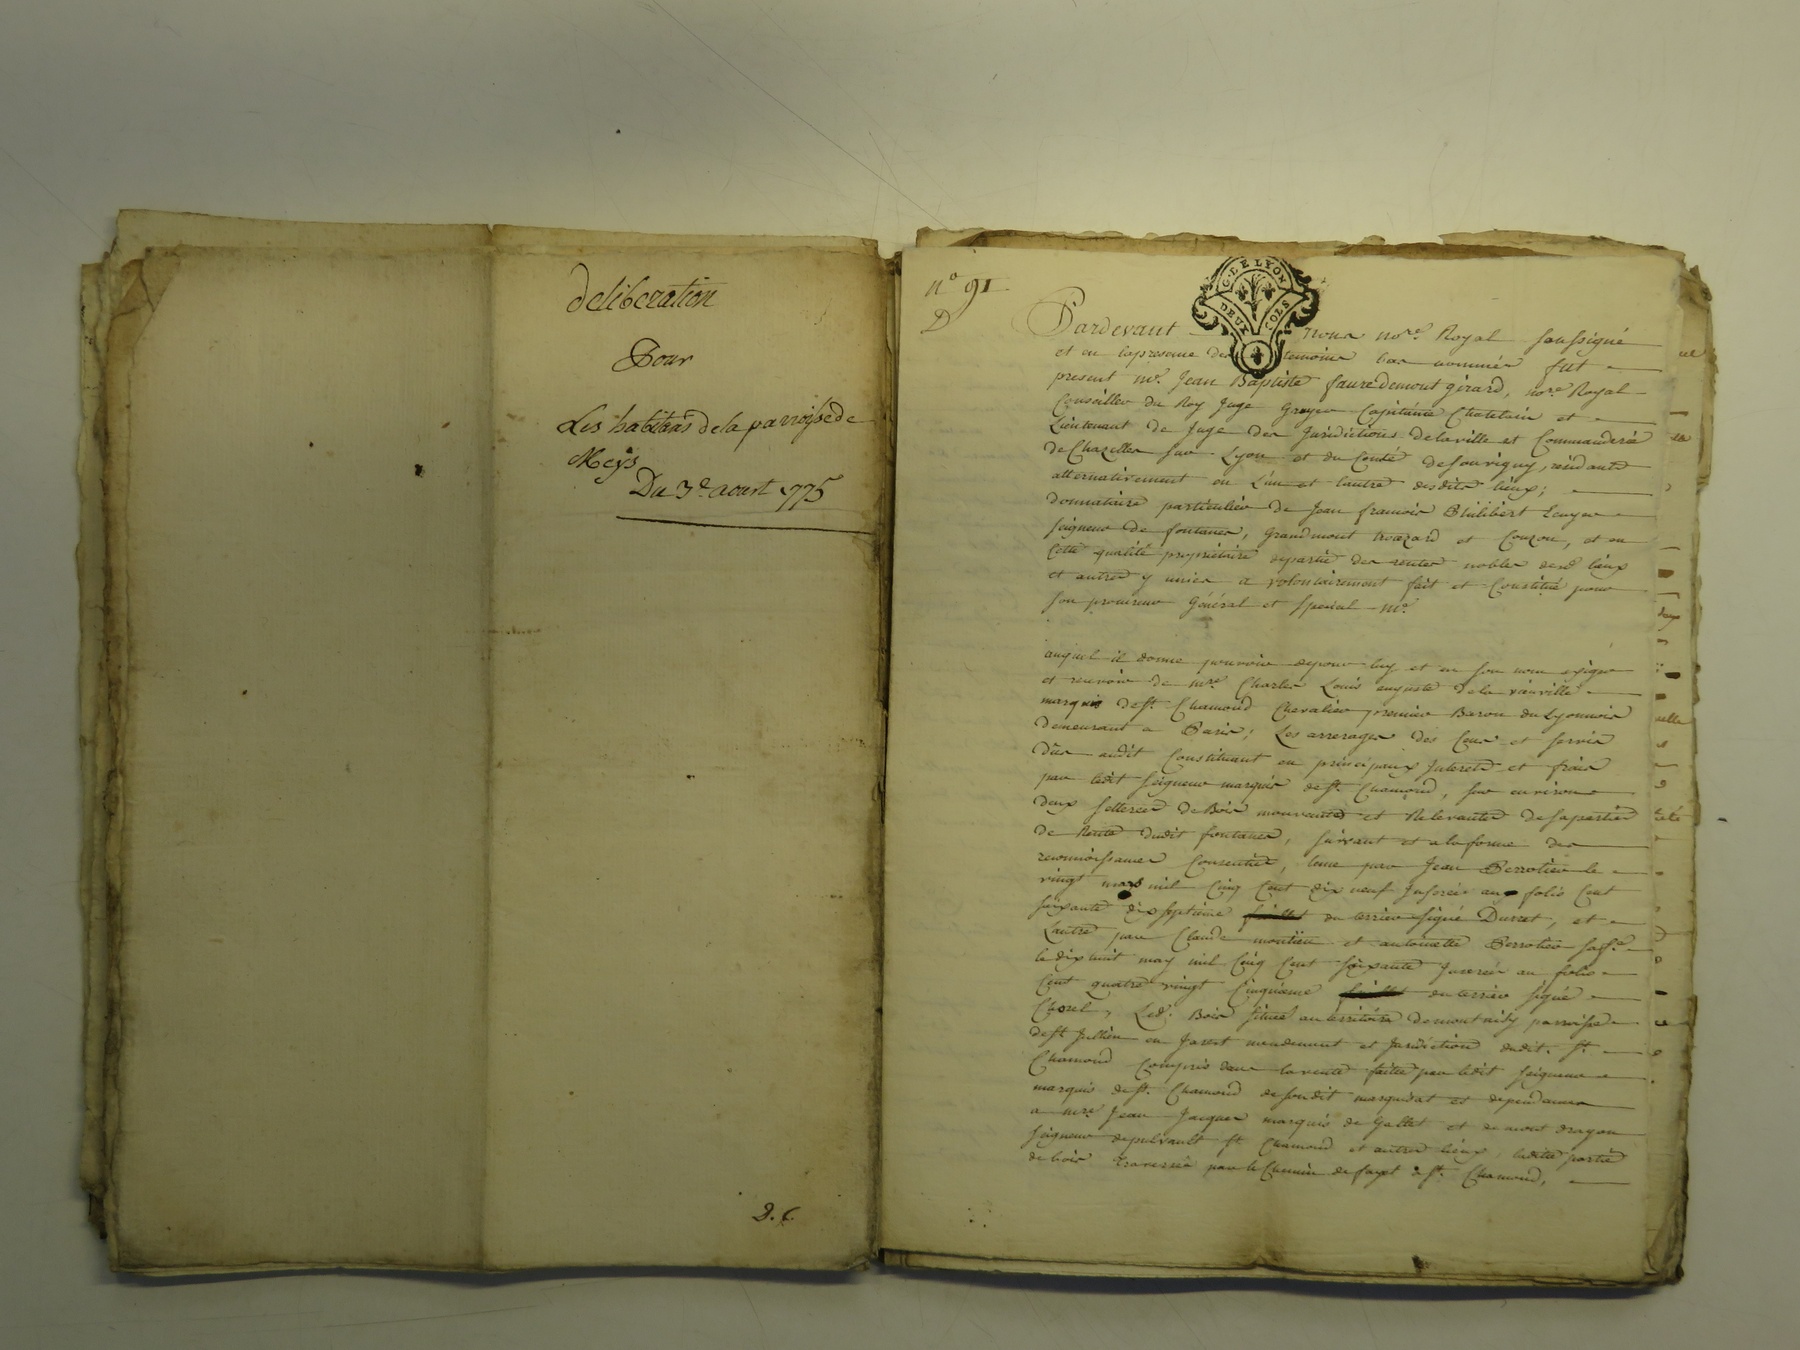 deliberation
Pour
Les habitans de la parroisse de
Meys
Du 3e. aoust 1775
D. C.
n° 91
D
G. LE LYON
DEUX SOLS
Pardevant Nous no.re Royal soussigné
et en la presence des temoins bas nommés fut
present m.e Jean Baptiste faure demont girard, no.re Royal
Conseiller du Roy Juge Capitaine Chatelain et
Lieutenant de Juge des Jurisdictions de la ville et Commanderie
de Chazelles sur Lyon et du Comté de souvigny, residant
alternativement en L'un et l'autre desdits lieux;
donnataire particulier de Jean francois Philibert
seigneur de fontanes, grandmont et Couzon, et en
Cette qualité propriétaire de partie des rentes nobles desd. lieux
et autres y unies a volontairement fait et Constitué pour
son procureur Général et special m.e
auquel il donne pouvoir de pour luy et en son nom exiger
et recevoir de m.re Charles Louis auguste de la vieuville
marquis de st. Chamond Chevalier premier Baron du Lyonnois
demeurant a Paris; Les arrerages des Cens et servis
dus audit Constituant en principaux Interets et frais
par ledit seigneur marquis de st. Chamond, sur environ
deux setterées de Bois mouvantes et Relevantes de sa partie
de Rente dudit fontanes, suivant et a la forme des
reconnoissances Consenties, l'une par Jean Perrotier le
vingt mars mil Cinq Cent dix neuf Inserée au folio Cent
soixante dix septieme du terrier signé Durret, et
L'autre par Claude et antoinette Perrotier
le dix huit may mil Cinq Cent soixante Inserée au folio
Cent quatre vingt Cinquieme du terrier signé
Chorel, Led. Bois situé au territoire de parroisse
de st. Jullien en Jarest mandement et Jurisdiction dudit st.
Chamond Compris dans la vente faitte par ledit seigneur
marquis de st. Chamond de son dit marquisat et dependances
a m.re Jean Jacques marquis de Gallet et de mont dragon
seigneur de pulvault st. Chamond et autres lieux, ladite partie
de bois traversée par le Chemin de fayet a st. Chamond,